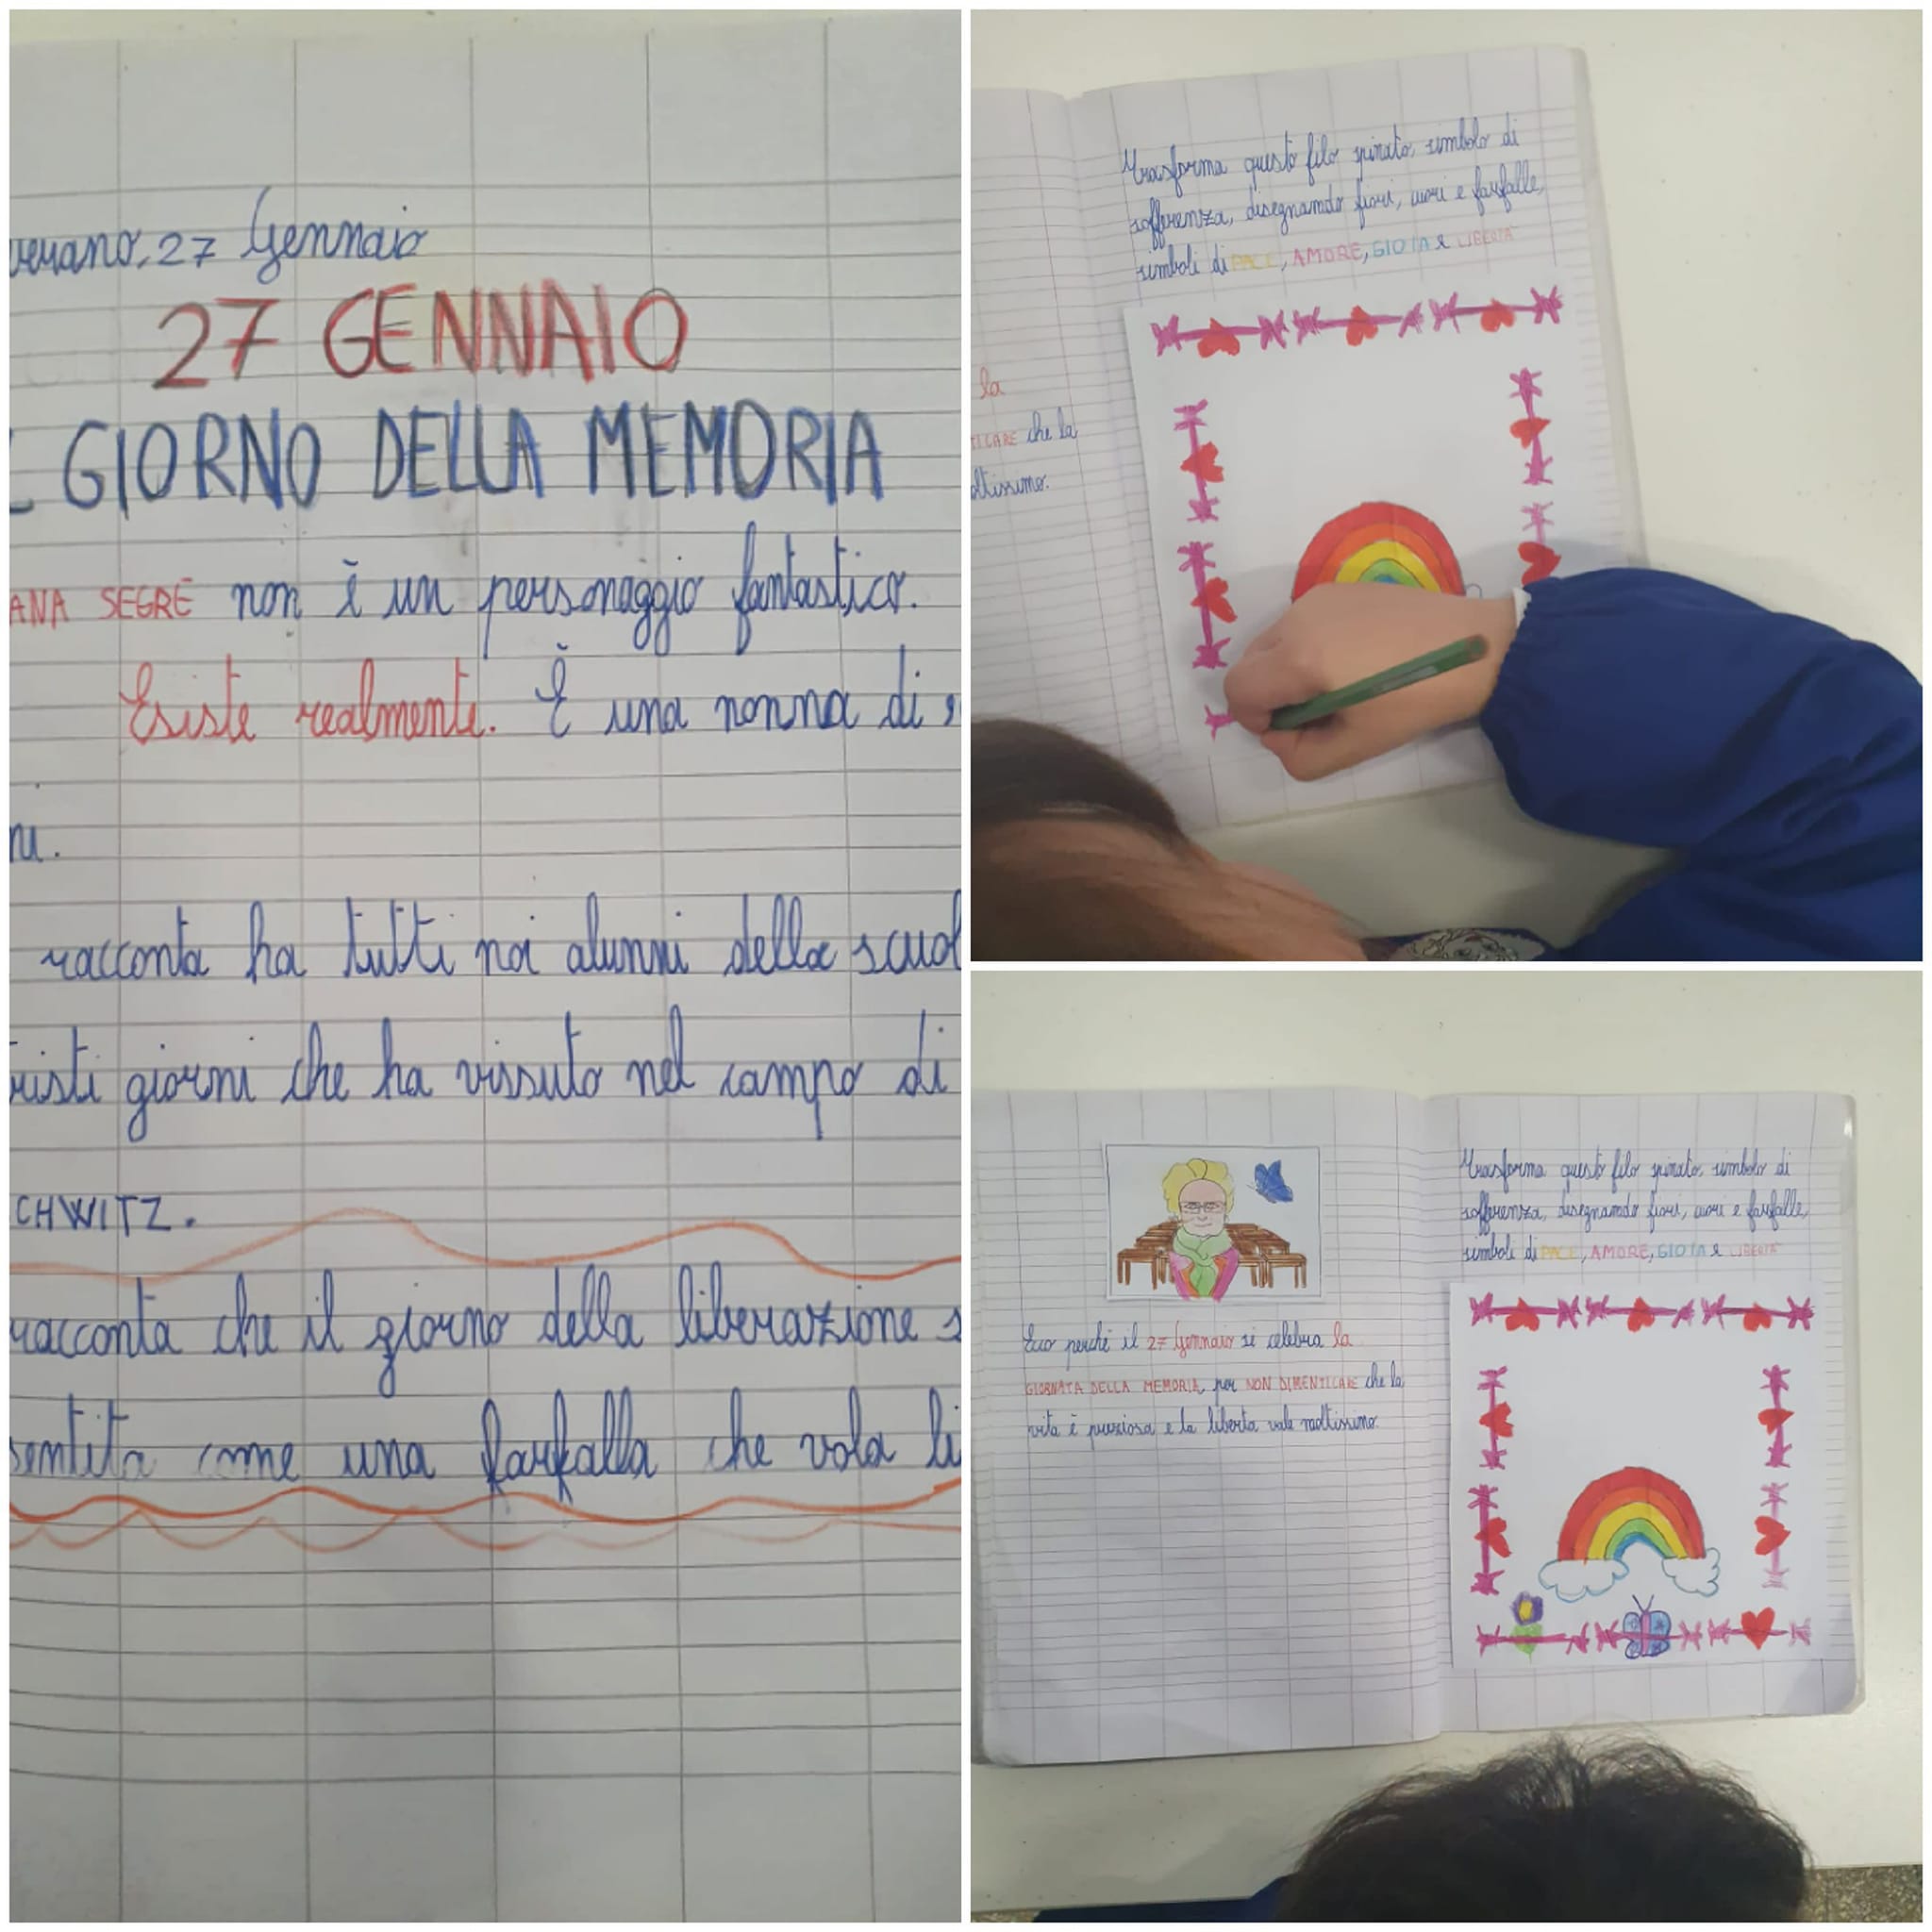 verano, 27 Gennaio
27 GENNAIO
L GIORNO DELLA MEMORIA
ANA SEGRE non è un personaggio fantastico.
Esiste realmente. È una nonna di s
ni.
racconta ha tutti noi alunni della scuol
risti giorni che ha vissuto nel campo di
CHWITZ.
racconta che il giorno della liberazione s
sentita come una farfalla che vola li
Trasforma questo filo spinato, simbolo di
sofferenza, disegnando fiori, cuori e farfalle,
simboli di PACE, AMORE, GIOIA e LIBERTÀ
la
TICARE che la
oltissimo.
Ecco perché il 27 Gennaio si celebra la
GIORNATA DELLA MEMORIA, per NON DIMENTICARE che la
vita è preziosa e la libertà vale moltissimo.
Trasforma questo filo spinato, simbolo di
sofferenza, disegnando fiori, cuori e farfalle,
simboli di PACE, AMORE, GIOIA e LIBERTÀ